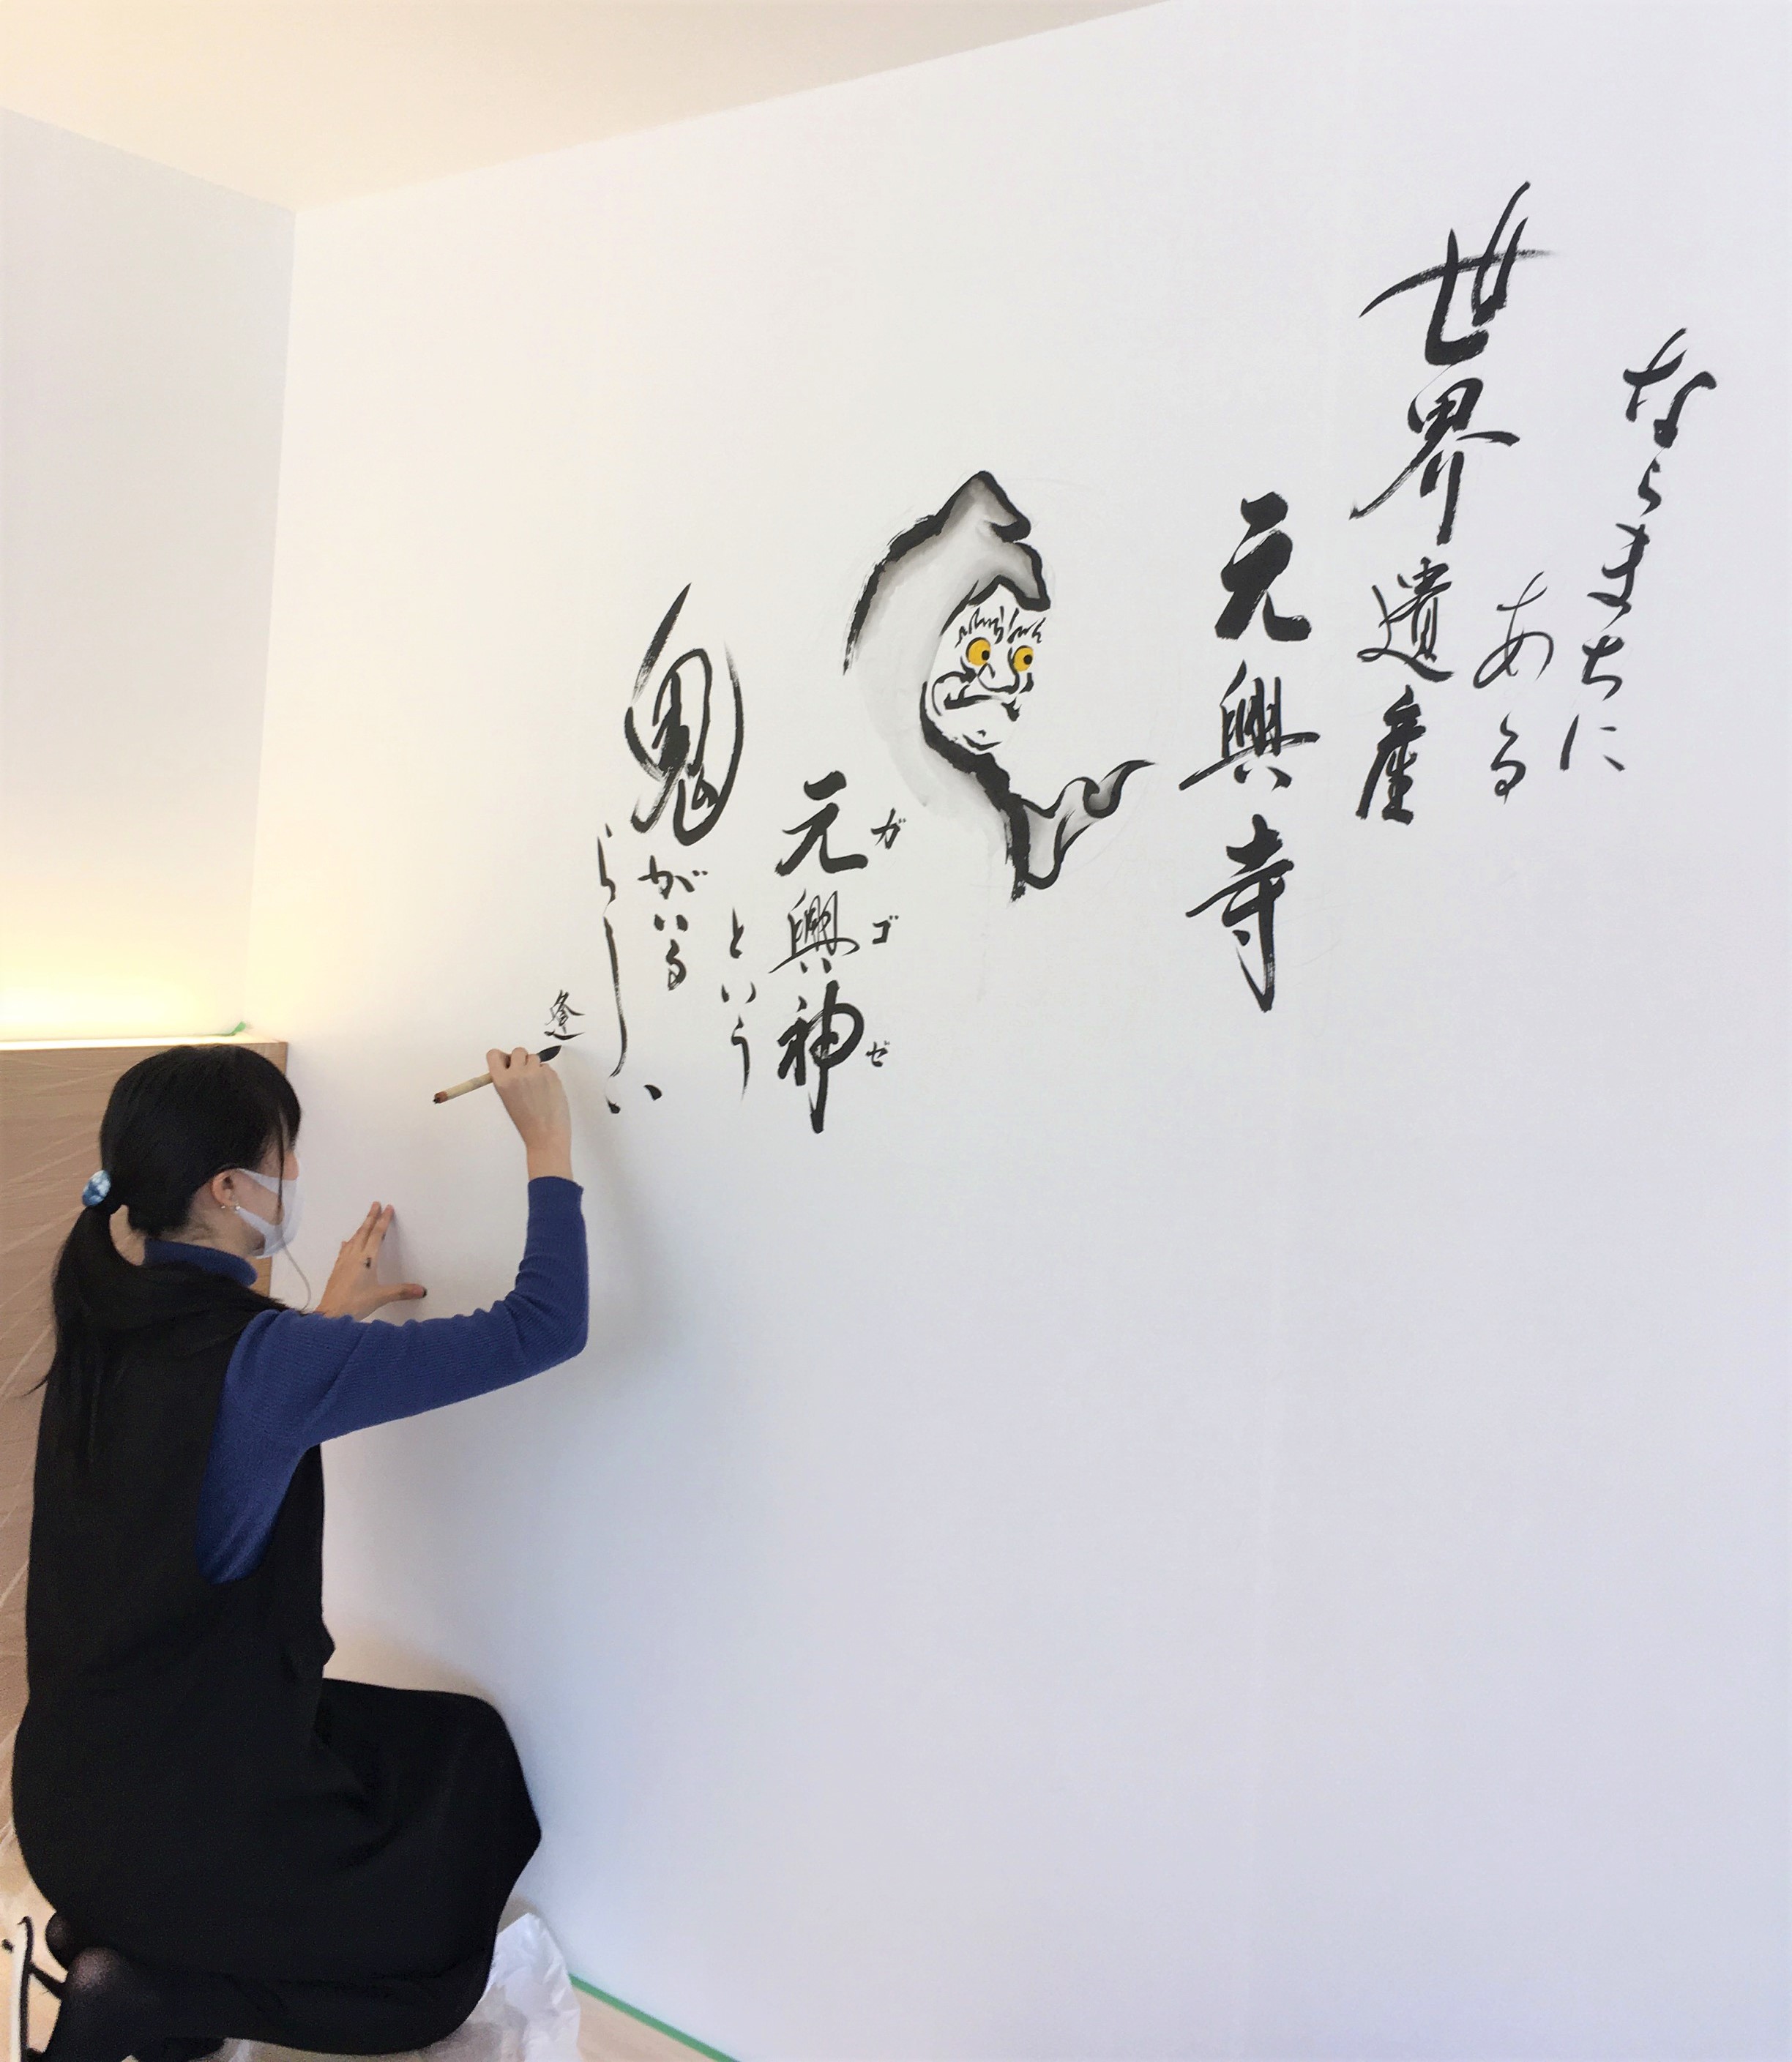 ならまちに
ある
世界遺産
元興寺
ガゴゼ
元興神
という
鬼
がいる
らしい
逢